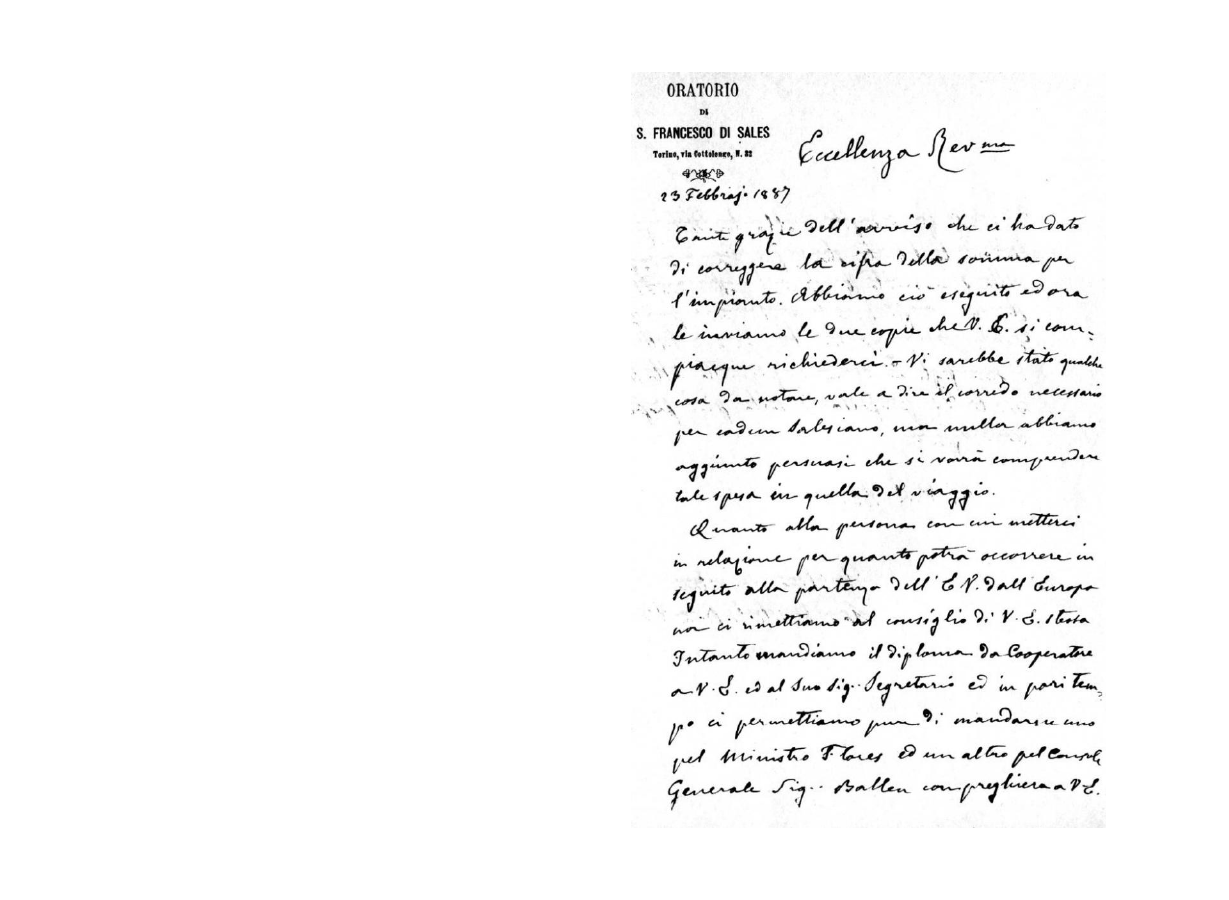 ORATORIO
DI
S. FRANCESCO DI SALES
Torino, via Cottolengo, N. 32
Eccellenza Rev.ma
23 Febbraj. 1887
Tante grazie dell'avviso che ci ha dato
di correggere la cifra della somma per
l'impianto. Abbiamo ciò eseguito ed ora
le inviamo le due copie che V. E. si com-
piacque richiederci. - Vi sarebbe stato qualche
cosa da notare, vale a dire il corredo necessario
per cadun Salesiano, ma nulla abbiamo
aggiunto persuasi che si vorrà comprendere
tale spesa in quella del viaggio.
Quanto alla persona con cui metterci
in relazione per quanto potrà occorrere in
seguito alla partenza dell'E. V. dall'Europa
noi ci rimettiamo al consiglio di V. E. stessa
Intanto mandiamo il diploma da Cooperatore
a V. E. ed al Suo Sig. Segretario ed in pari tem-
po ci permettiamo pure di mandarne uno
pel Ministro Flores ed un altro pel Console
Generale Sig. Ballen con preghiera a V. E.